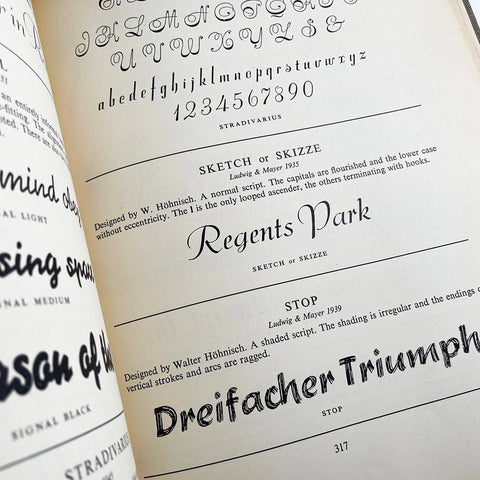 L
an entirely informal
-fitting. The
oted. There are also
mind obey
AL LIGHT
sing spac
GNAL MEDIUM
ason of th
SIGNAL BLACK
STRADIVARI
JHKLMNOPQRST
UVWXYZ&
abcdefghijklmnopqrstuvwxyz
1234567890
STRADIVARIUS
SKETCH or SKIZZE
Ludwig & Mayer 1935
Designed by W. Höhnisch. A normal script. The capitals are flourished and the lower case
without eccentricity. The l is the only looped ascender, the others terminating with hooks.
Regents Park
SKETCH or SKIZZE
STOP
Ludwig & Mayer 1939
Designed by Walter Höhnisch. A shaded script. The shading is irregular and the endings o
vertical strokes and arcs are ragged.
Dreifacher Triumph
STOP
317